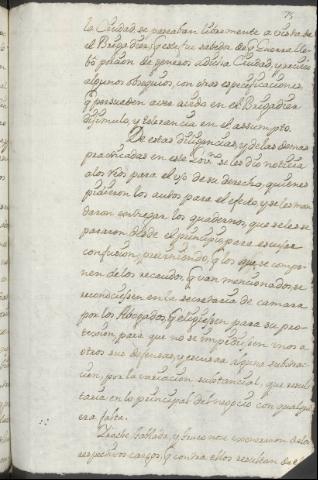 75
la Ciudad, se paseaban libremente a vista de
el Brigadier, q este fue sabedor de q Guerra lle-
bó porcion de generos a dicha Ciudad, y recivió
algunos obsequios, con otras especificaciones,
q persuaden aver avido en el Brigadier
disimulo, y tolerancia en el assumpto.
De estas diligencias, y de las demas
practicadas en este Sor. se les dio noticia
a los para el uso de su derecho, quienes
pidieron los autos para el efecto y se les man-
daron entregar los quadernos, que se les se-
pararon desde el principio para escusar
confusion, previniendo, q los que se compo-
nen de los recaudos, q van mencionados, se
reconociessen en la secretaria de camara
por los Abogados, q eligiessen para su pro-
teccion, para que no se impidiessen unos a
otros sus defensas, y escusar alguna substrac-
cion, por la variacion substancial, que resul-
taria en lo principal del negocio con qualquie-
ra falta.
y haviendose exonerar de los
respectivos cargos, q contra ellos resultan de el